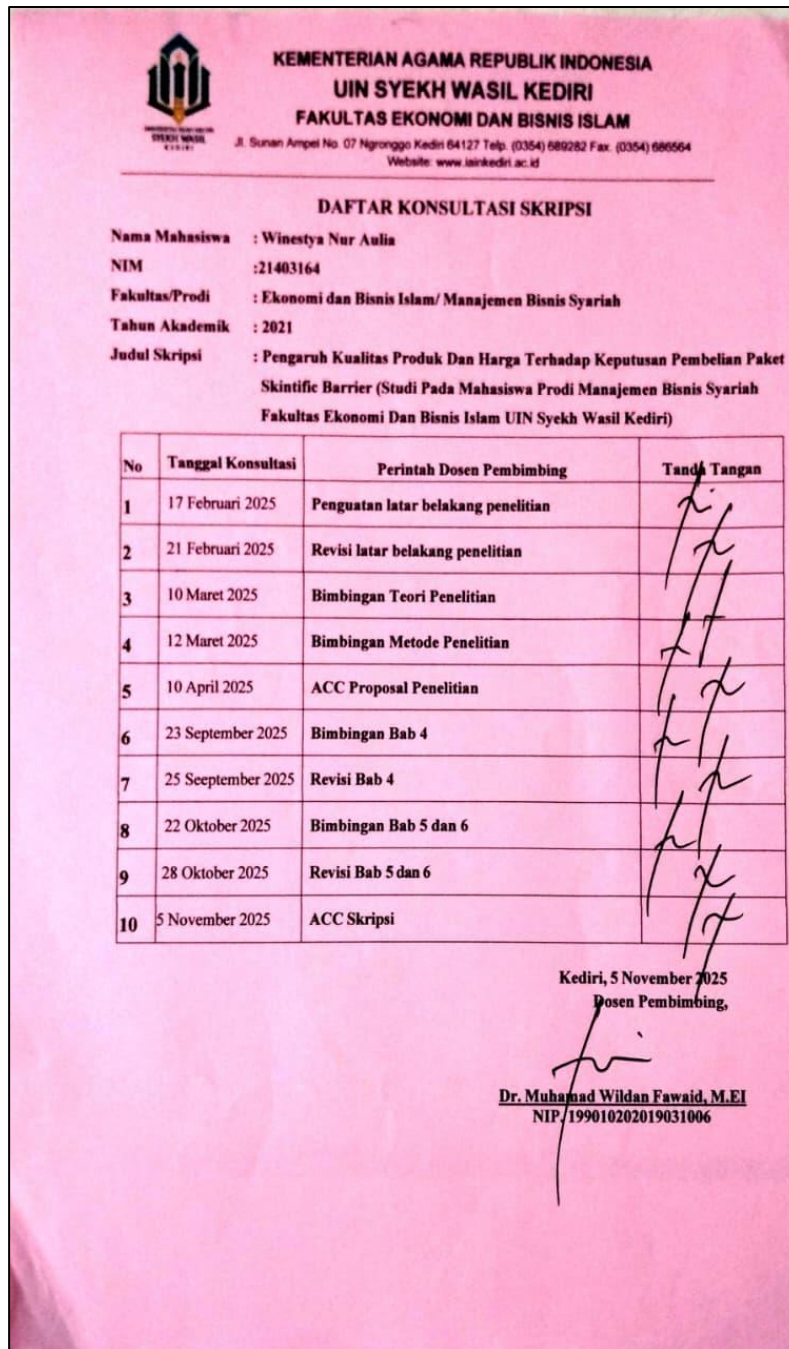 KEMENTERIAN AGAMA REPUBLIK INDONESIA
UIN SYEKH WASIL KEDIRI
FAKULTAS EKONOMI DAN BISNIS ISLAM
SYEKH WASIL
KEDIRI
Jl. Sunan Ampel No. 07 Ngronggo Kediri 64127 Telp. (0354) 689282 Fax. (0354) 686564
Website: www.iainkediri.ac.id
DAFTAR KONSULTASI SKRIPSI
Nama Mahasiswa : Winestya Nur Aulia
NIM :21403164
Fakultas/Prodi : Ekonomi dan Bisnis Islam/ Manajemen Bisnis Syariah
Tahun Akademik : 2021
Judul Skripsi : Pengaruh Kualitas Produk Dan Harga Terhadap Keputusan Pembelian Paket
Skintific Barrier (Studi Pada Mahasiswa Prodi Manajemen Bisnis Syariah
Fakultas Ekonomi Dan Bisnis Islam UIN Syekh Wasil Kediri)
No Tanggal Konsultasi Perintah Dosen Pembimbing Tanda Tangan
1 17 Februari 2025 Penguatan latar belakang penelitian
2 21 Februari 2025 Revisi latar belakang penelitian
3 10 Maret 2025 Bimbingan Teori Penelitian
4 12 Maret 2025 Bimbingan Metode Penelitian
5 10 April 2025 ACC Proposal Penelitian
6 23 September 2025 Bimbingan Bab 4
7 25 Seeptember 2025 Revisi Bab 4
8 22 Oktober 2025 Bimbingan Bab 5 dan 6
9 28 Oktober 2025 Revisi Bab 5 dan 6
10 5 November 2025 ACC Skripsi
Kediri, 5 November 2025
Dosen Pembimbing,
Dr. Muhamad Wildan Fawaid, M.EI
NIP. 199010202019031006